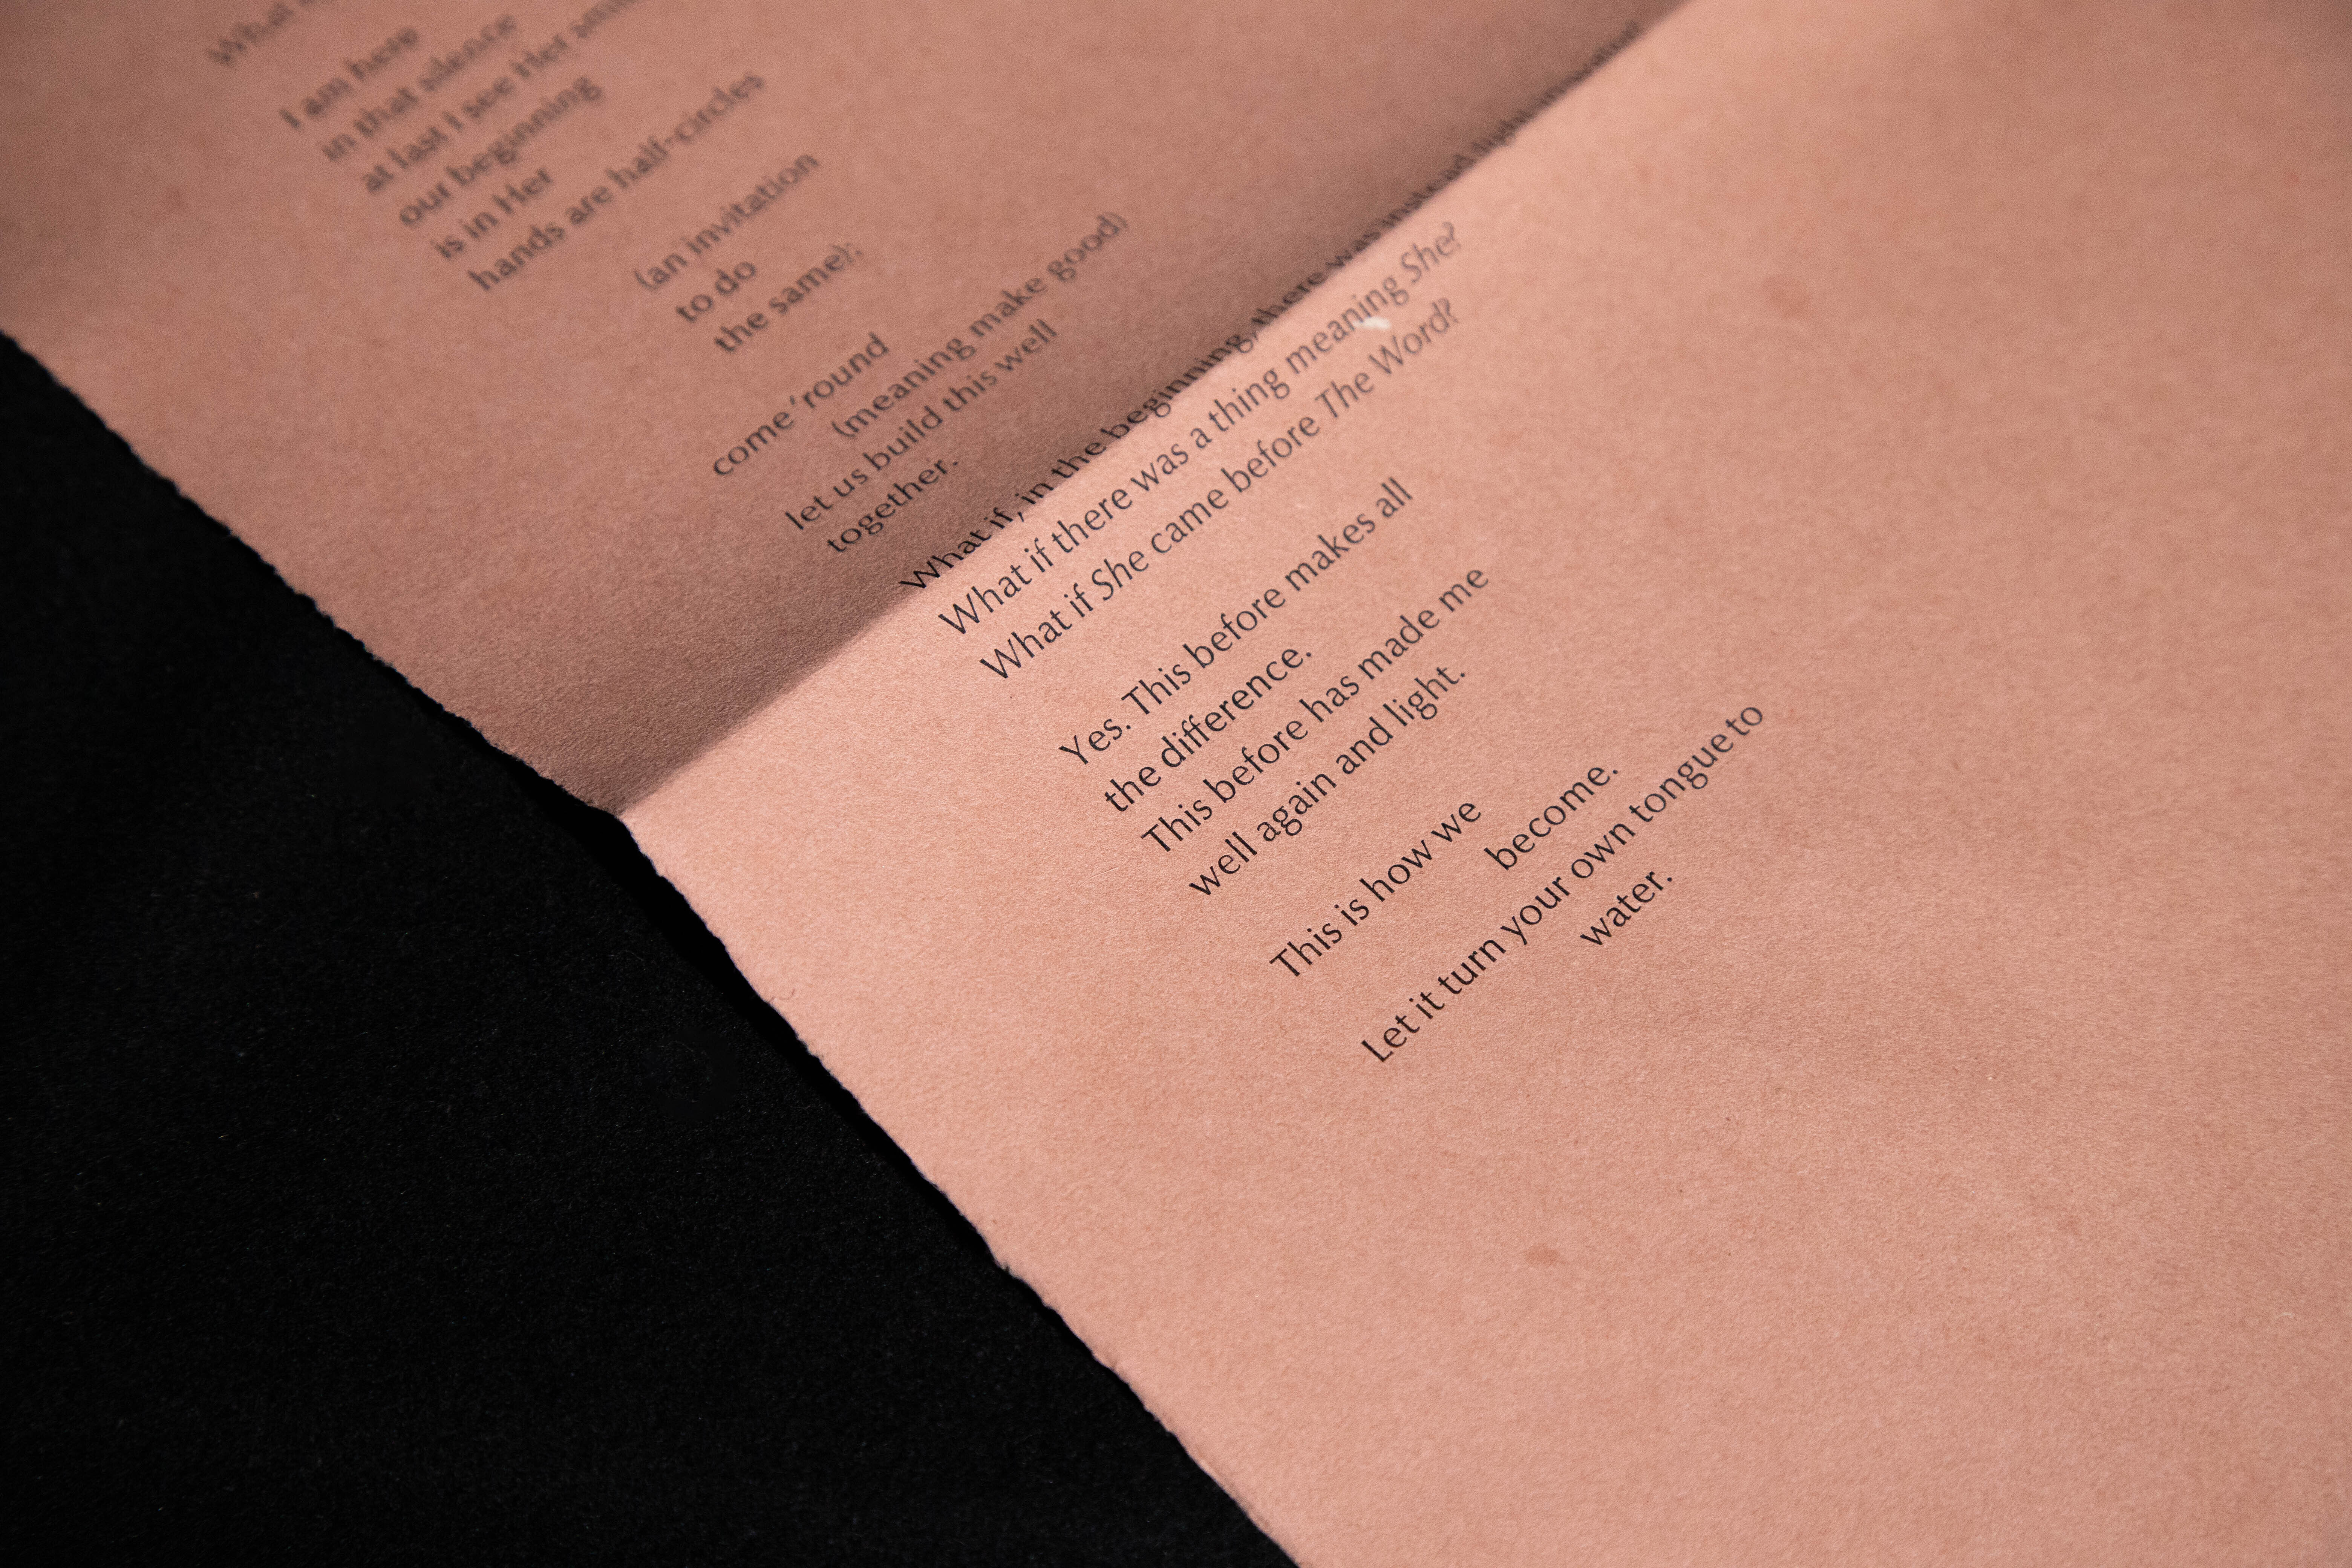 What
I am here
in that silence
at last I see Her
our beginning
is in Her
hands are half-circles
(an invitation
to do
the same);
come ’round
(meaning make good)
let us build this well
together.
What if, in the beginning, there was instead light
What if there was a thing meaning She?
What if She came before The Word?
Yes. This before makes all
the difference.
This before has made me
well again and light.
This is how we
become.
Let it turn your own tongue to
water.